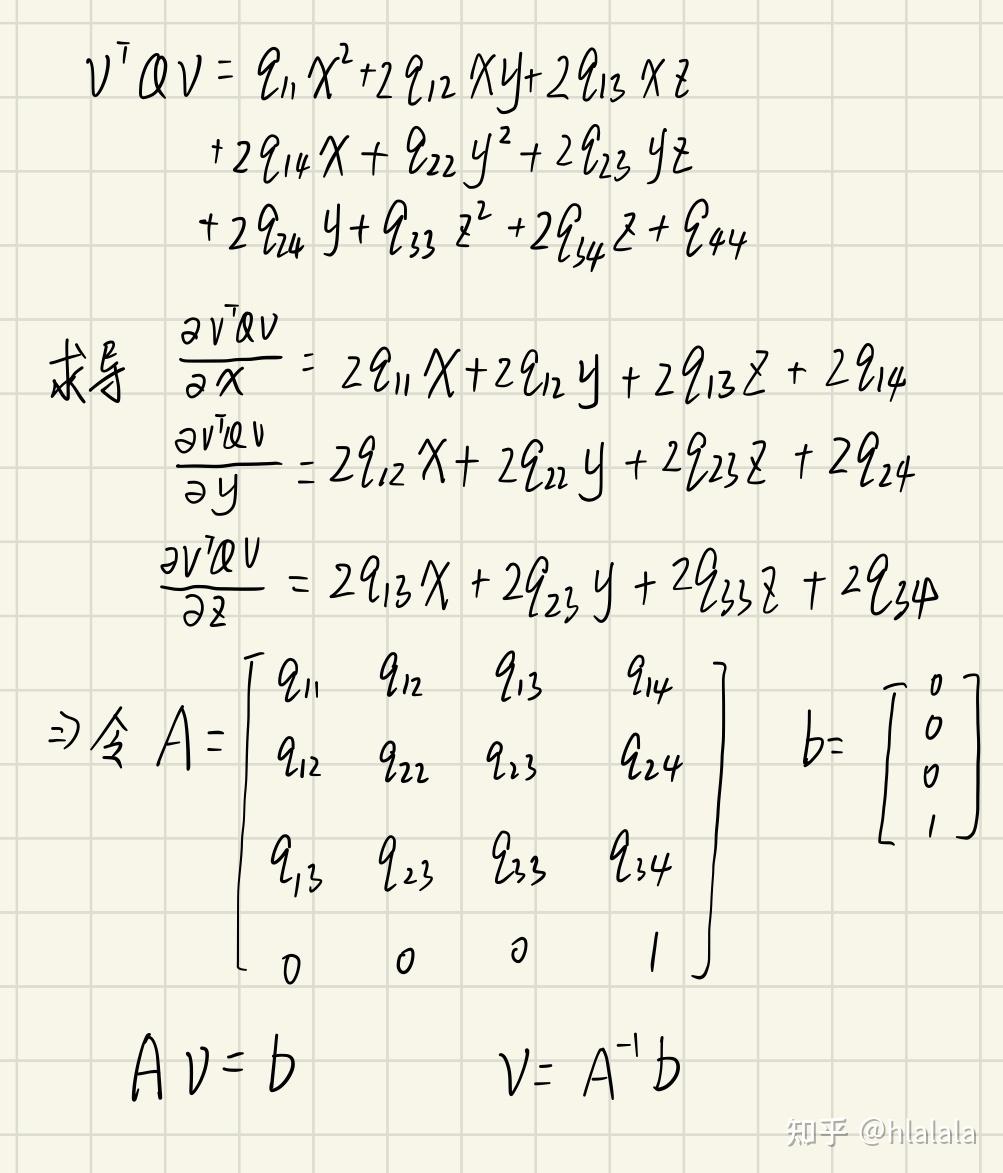 vᵀQv = q₁₁x² + 2q₁₂xy + 2q₁₃xz
+ 2q₁₄x + q₂₂y² + 2q₂₃yz
+ 2q₂₄y + q₃₃z² + 2q₃₄z + q₄₄
求导 ∂vᵀQv/∂x = 2q₁₁x + 2q₁₂y + 2q₁₃z + 2q₁₄
∂vᵀQv/∂y = 2q₁₂x + 2q₂₂y + 2q₂₃z + 2q₂₄
∂vᵀQv/∂z = 2q₁₃x + 2q₂₃y + 2q₃₃z + 2q₃₄
⇒令 A = [q₁₁ q₁₂ q₁₃ q₁₄; q₁₂ q₂₂ q₂₃ q₂₄; q₁₃ q₂₃ q₃₃ q₃₄; 0 0 0 1] b = [0; 0; 0; 1]
Av = b v = A⁻¹b
知乎 @hlalala